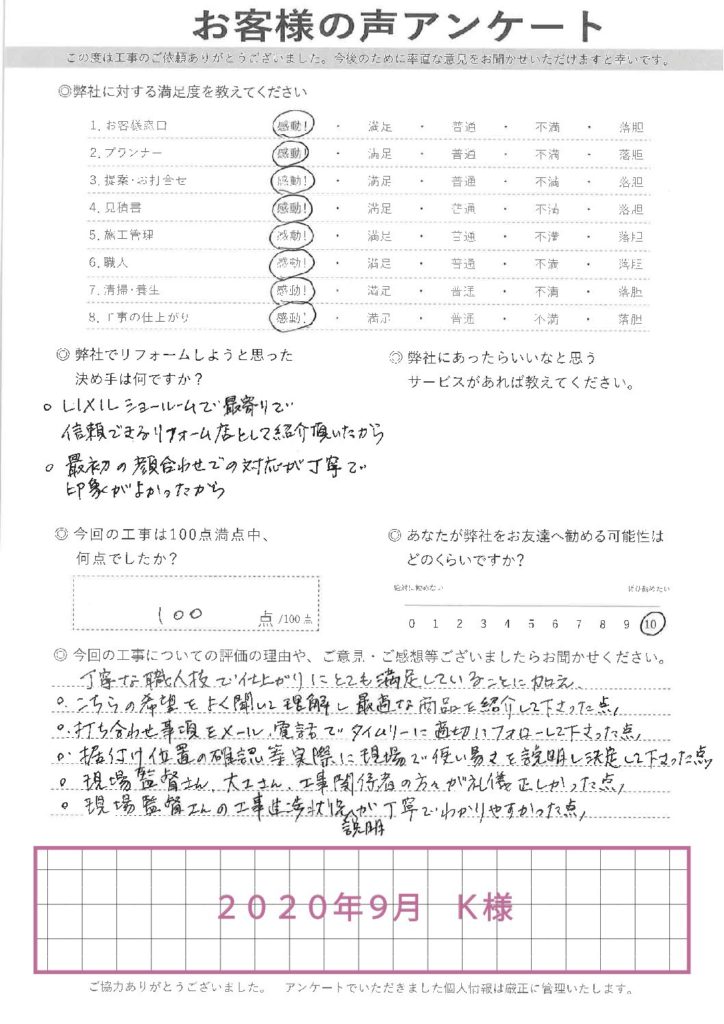 お客様の声アンケート
この度は工事のご依頼ありがとうございました。今後のために率直な意見をお聞かせいただけますと幸いです。
◎弊社に対する満足度を教えてください
1. お客様窓口 感動! ・ 満足 ・ 普通 ・ 不満 ・ 落胆
2. プランナー 感動! ・ 満足 ・ 普通 ・ 不満 ・ 落胆
3. 提案・お打合せ 感動! ・ 満足 ・ 普通 ・ 不満 ・ 落胆
4. 見積書 感動! ・ 満足 ・ 普通 ・ 不満 ・ 落胆
5. 施工管理 感動! ・ 満足 ・ 普通 ・ 不満 ・ 落胆
6. 職人 感動! ・ 満足 ・ 普通 ・ 不満 ・ 落胆
7. 清掃・養生 感動! ・ 満足 ・ 普通 ・ 不満 ・ 落胆
8. 工事の仕上がり 感動! ・ 満足 ・ 普通 ・ 不満 ・ 落胆
◎ 弊社でリフォームしようと思った
決め手は何ですか?
○ LIXILショールームで最寄りで
信頼できるリフォーム店として紹介頂いたから
○ 最初の顔合わせでの対応が丁寧で
印象がよかったから
◎ 弊社にあったらいいなと思う
サービスがあれば教えてください。
◎ 今回の工事は100点満点中、
何点でしたか?
100 点 /100点
◎ あなたが弊社をお友達へ勧める可能性は
どのくらいですか?
絶対に勧めない ぜひ勧めたい
0 1 2 3 4 5 6 7 8 9 10
◎ 今回の工事についての評価の理由や、ご意見・ご感想等ございましたらお聞かせください。
丁寧な職人技で仕上がりにとても満足していることに加え、
○ こちらの希望をよく聞いて理解し最適な商品を紹介して下さった点、
○ 打ち合わせ事項をメール、電話でタイムリーに適切にフォローして下さった点、
○ 据付け位置の確認等実際に現場で使い易さを説明し決定して下さった点、
○ 現場監督さん、大工さん、工事関係者の方々が礼儀正しかった点、
○ 現場監督さんの工事進渉状況説明が丁寧でわかりやすかった点、
2020年9月 K様
ご協力ありがとうございました。 アンケートでいただきました個人情報は厳正に管理いたします。